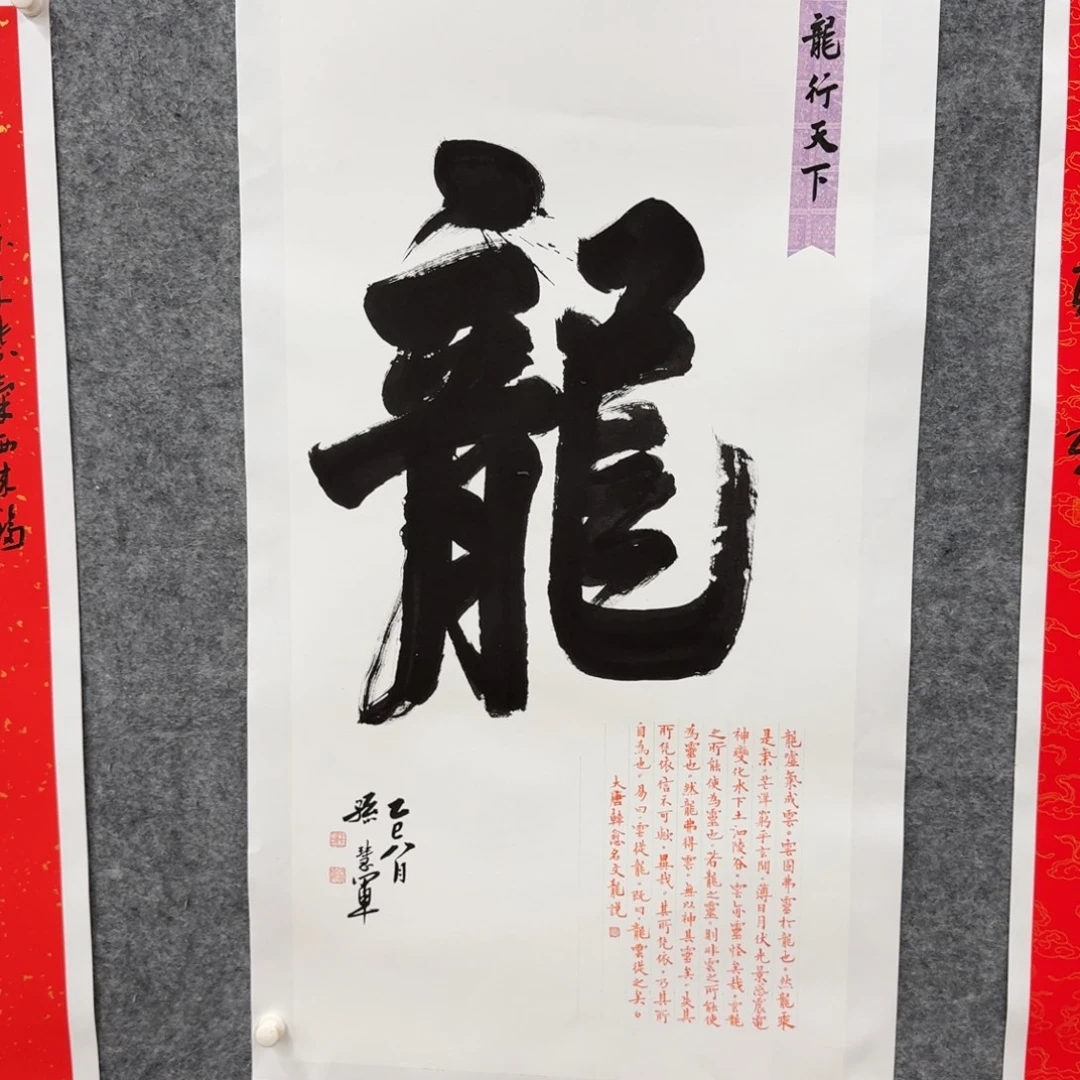 龍行天下
龍
龍噓氣成雲。雲固弗靈於龍也。然龍乘
是氣。茫洋窮乎玄間。薄日月伏光景感震電
神變化水下土汩陵谷。雲亦靈怪矣哉。雲龍
之所能使為靈也。若龍之靈。則非雲之所能使
為靈也。然龍弗得雲。無以神其靈矣。失其
所凭依信不可歟。異哉。其所凭依。乃其所
自為也。易曰。雲從龍。既曰。龍雲從之矣。
大唐韓愈名文龍說
乙巳八月
孫慧軍